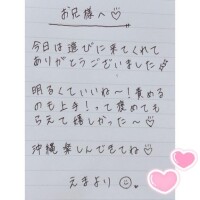 お兄様へ♡
今日は遊びに来てくれて
ありがとうございました
明るくていいね〜!責める
のも上手!って褒めても
らえて嬉しかった〜♡
沖縄楽しんできてね♡
えまより